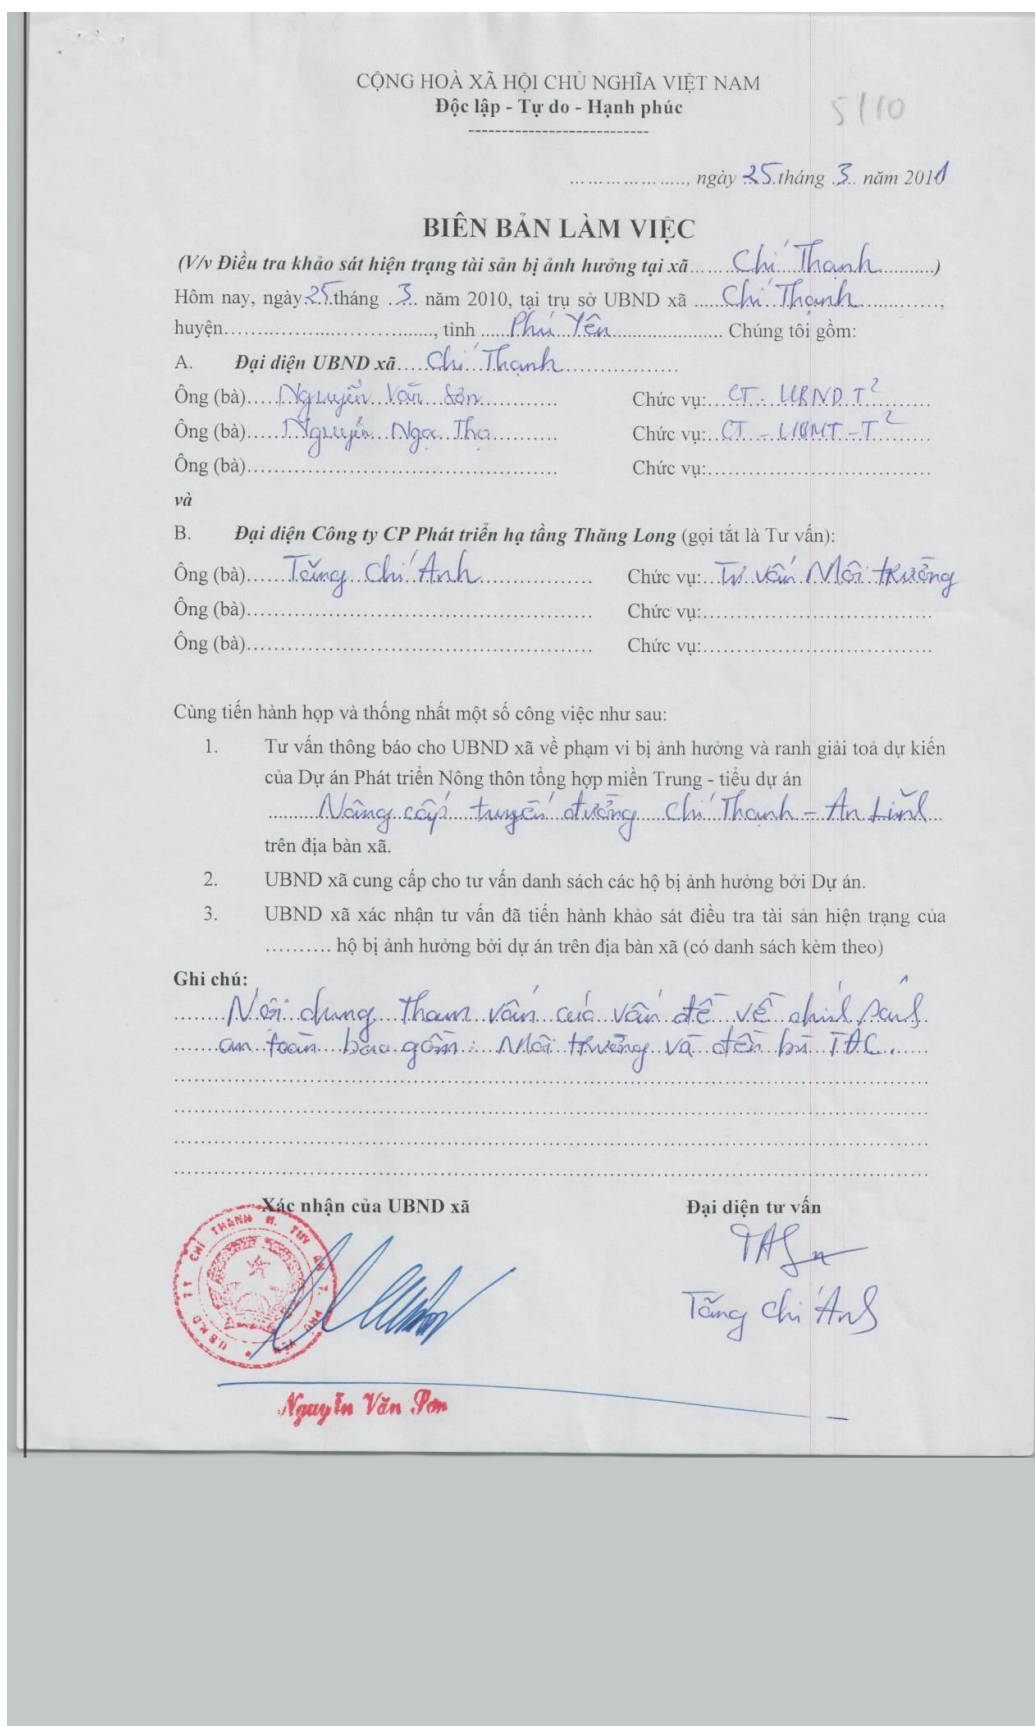 CỘNG HOÀ XÃ HỘI CHỦ NGHĨA VIỆT NAM
Độc lập - Tự do - Hạnh phúc
5/10
---------------------------
....................., ngày 25 tháng 3 năm 2011
BIÊN BẢN LÀM VIỆC
(V/v Điều tra khảo sát hiện trạng tài sản bị ảnh hưởng tại xã...... Chí Thạnh ..........)
Hôm nay, ngày 25 tháng 3 năm 2010, tại trụ sở UBND xã ..... Chí Thạnh ..............,
huyện................................., tỉnh ..... Phú Yên ..................... Chúng tôi gồm:
A. Đại diện UBND xã.... Chí Thạnh ..................
Ông (bà).... Nguyễn Văn Sơn ........... Chức vụ: CT. UBND T²
Ông (bà).... Nguyễn Ngọc Thọ .......... Chức vụ: CT - UBMT - T²
Ông (bà)................................................ Chức vụ:...................................
và
B. Đại diện Công ty CP Phát triển hạ tầng Thăng Long (gọi tắt là Tư vấn):
Ông (bà)..... Tăng Chí Anh ................. Chức vụ: Tư vấn Môi trường
Ông (bà)..................................................... Chức vụ:...................................
Ông (bà)..................................................... Chức vụ:...................................
Cùng tiến hành họp và thống nhất một số công việc như sau:
1. Tư vấn thông báo cho UBND xã về phạm vi bị ảnh hưởng và ranh giải toả dự kiến
của Dự án Phát triển Nông thôn tổng hợp miền Trung - tiểu dự án
........ Nâng cấp tuyến đường Chí Thạnh - An Lĩnh ...
trên địa bàn xã.
2. UBND xã cung cấp cho tư vấn danh sách các hộ bị ảnh hưởng bởi Dự án.
3. UBND xã xác nhận tư vấn đã tiến hành khảo sát điều tra tài sản hiện trạng của
.......... hộ bị ảnh hưởng bởi dự án trên địa bàn xã (có danh sách kèm theo)
Ghi chú:
........ Nội dung tham vấn các vấn đề về chính sách
...... an toàn bao gồm: Môi trường và đền bù TĐC.
Xác nhận của UBND xã Đại diện tư vấn
U B N D TT CHÍ THẠNH H. TUY AN T. PHÚ YÊN
Tăng Chí Anh
Nguyễn Văn Sơn